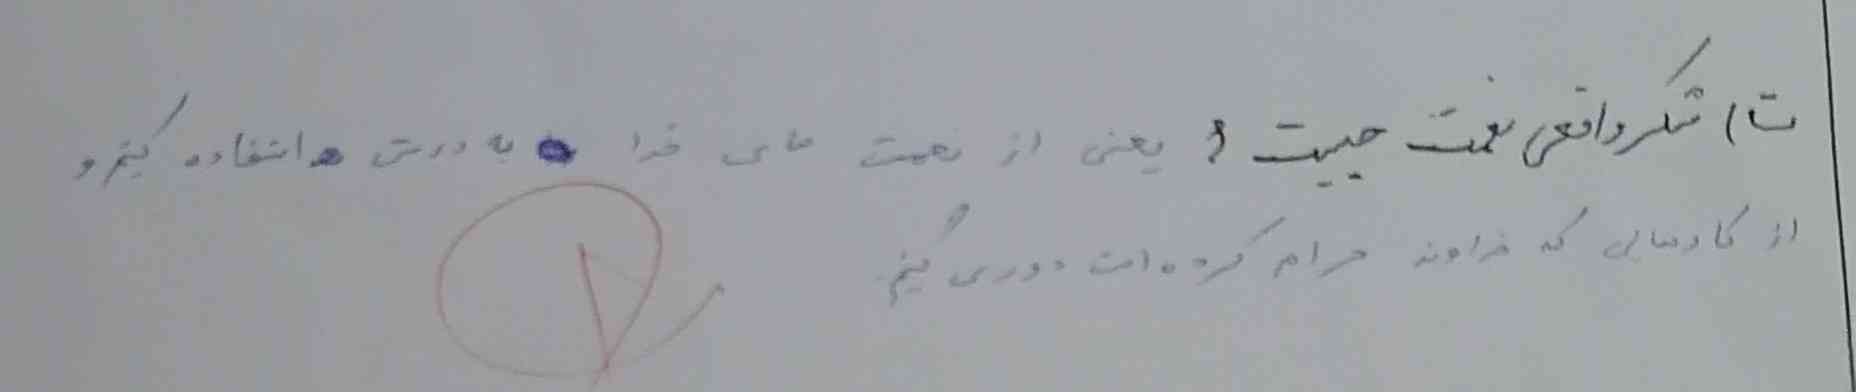 ت) شکر واقعی نعمت چیست ؟ یعنی از نعمت های خدا به درستی استفاده کنیم و
از کارهایی که خداوند حرام کرده است دوری کنیم.